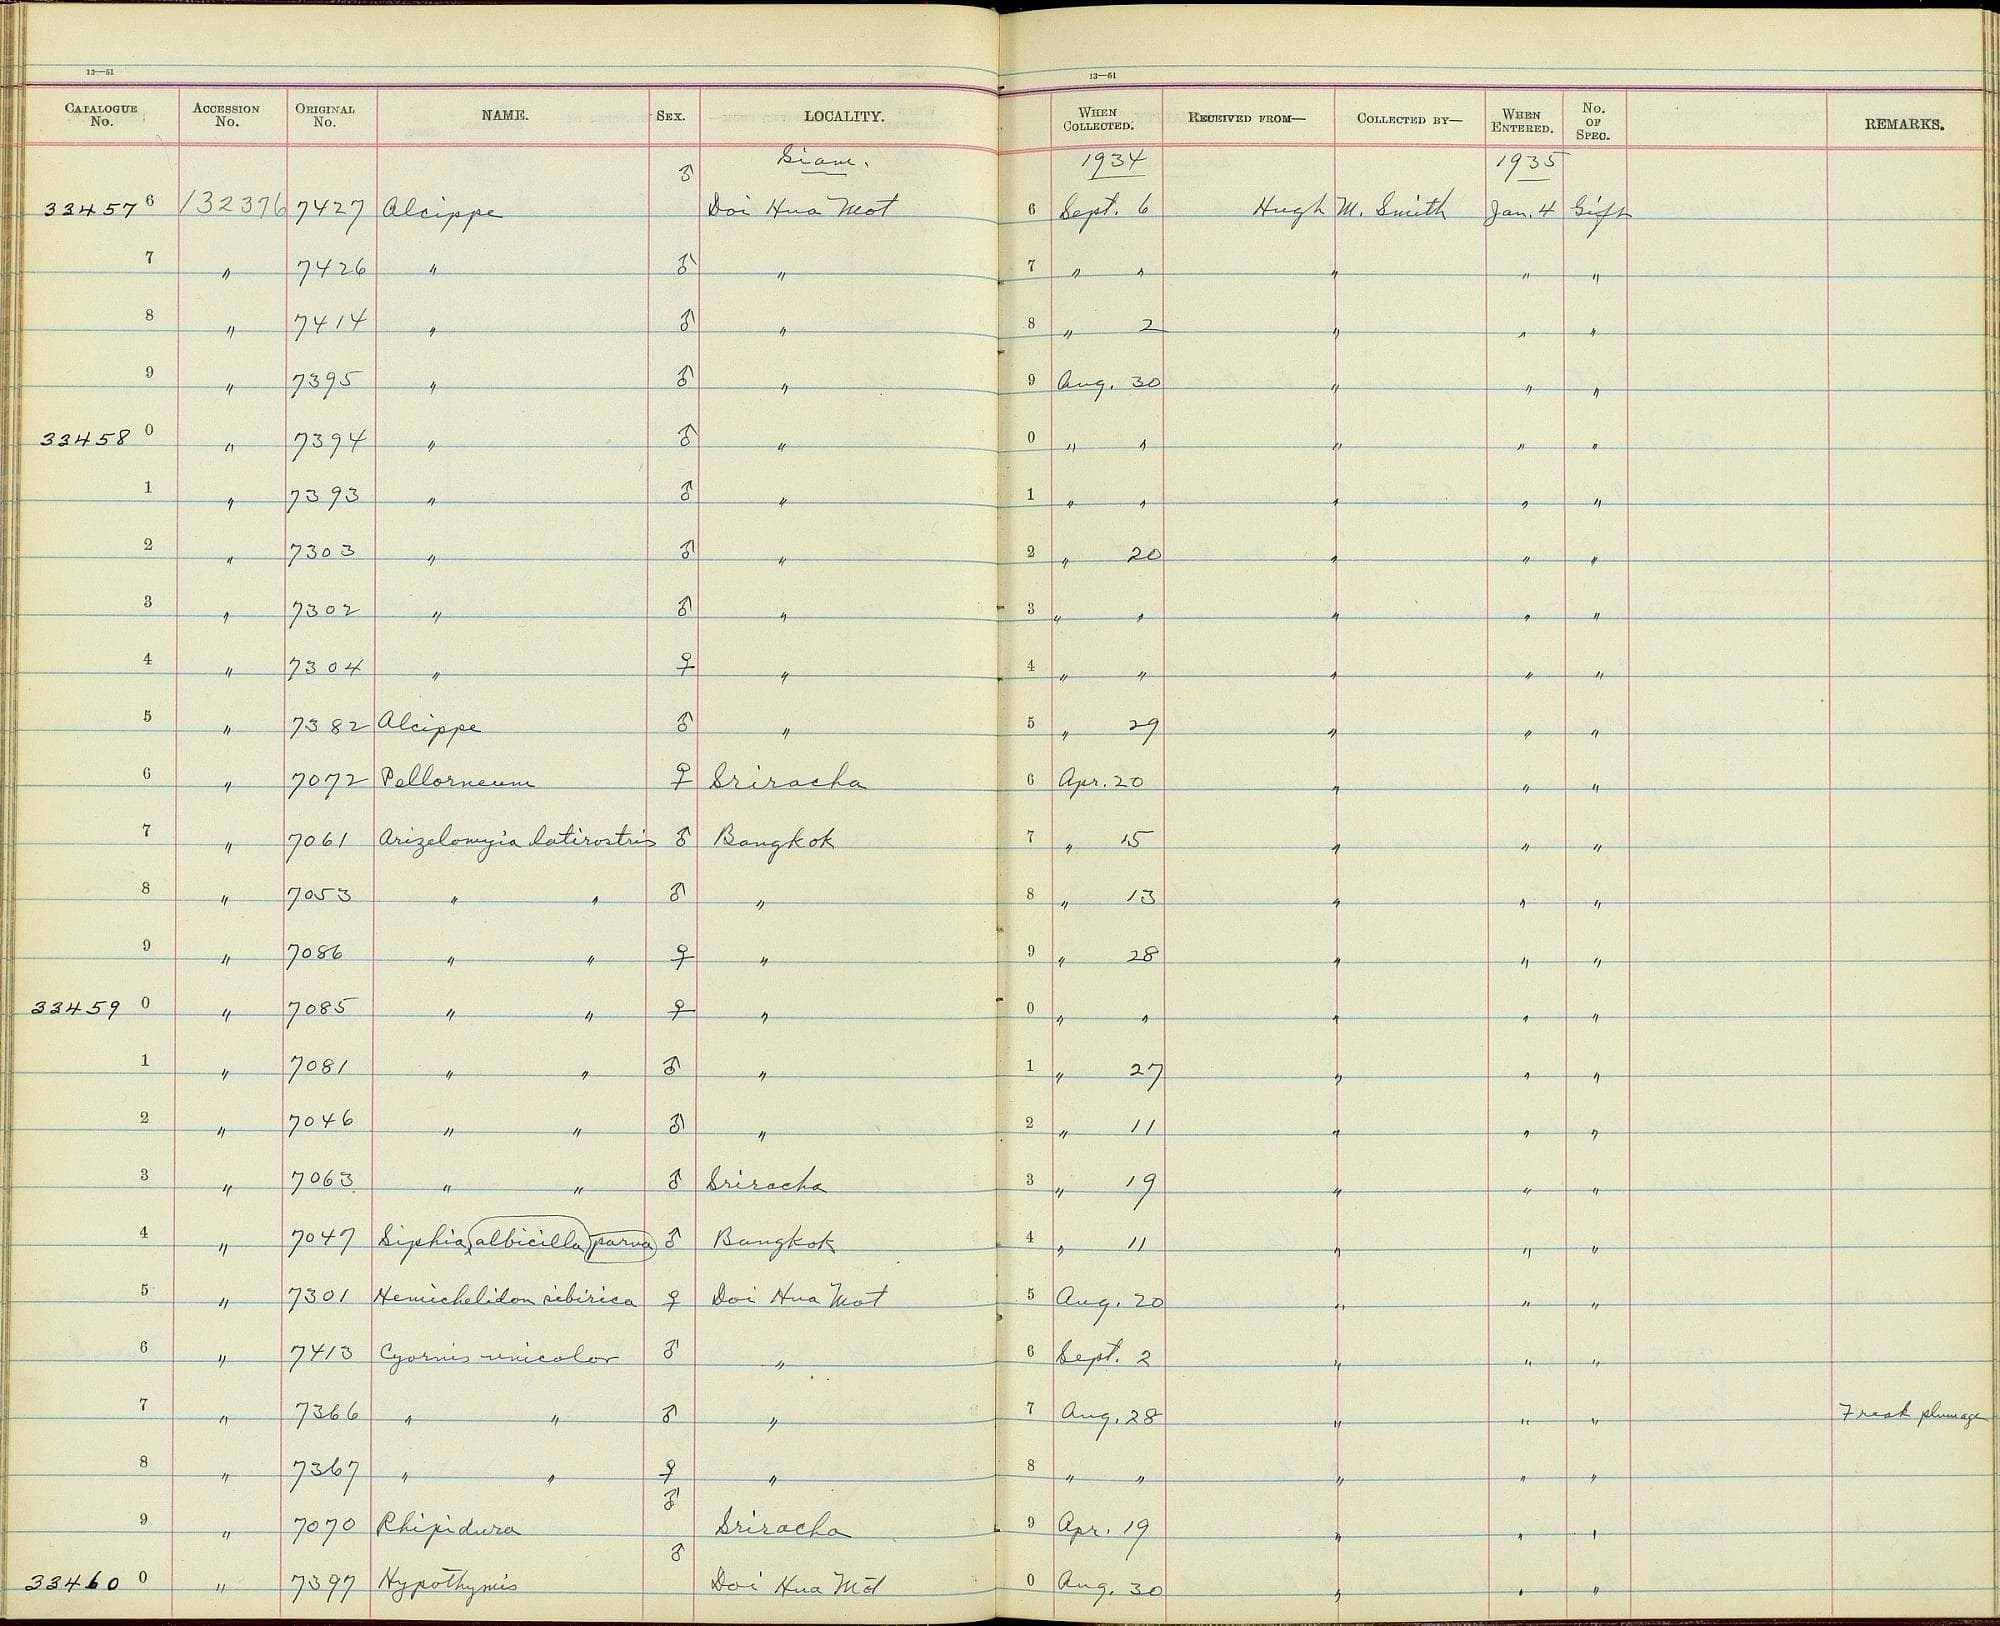 13—51 13—51
CATALOGUE No. ACCESSION No. ORIGINAL No. NAME. SEX. LOCALITY. WHEN COLLECTED. RECEIVED FROM— COLLECTED BY— WHEN ENTERED. No. OF SPEC. REMARKS.
Siam. 1934 1935
33457 6 132376 7427 Alcippe ♂ Doi Hua Mot 6 Sept. 6 Hugh M. Smith Jan. 4 Gift
7 " 7426 " ♂ " 7 " " " " "
8 " 7414 " ♂ " 8 " 2 " " "
9 " 7395 " ♂ " 9 Aug. 30 " " "
33458 0 " 7394 " ♂ " 0 " " " " "
1 " 7393 " ♂ " 1 " " " " "
2 " 7303 " ♂ " 2 " 20 " " "
3 " 7302 " ♂ " 3 " " " " "
4 " 7304 " ♀ " 4 " " " " "
5 " 7382 Alcippe ♂ " 5 " 29 " " "
6 " 7072 Pellorneum ♀ Sriracha 6 Apr. 20 " " "
7 " 7061 Arizelomyia latirostris ♂ Bangkok 7 " 15 " " "
8 " 7053 " " ♂ " 8 " 13 " " "
9 " 7086 " " ♀ " 9 " 28 " " "
33459 0 " 7085 " " ♀ " 0 " " " " "
1 " 7081 " " ♂ " 1 " 27 " " "
2 " 7046 " " ♂ " 2 " 11 " " "
3 " 7063 " " ♂ Sriracha 3 " 19 " " "
4 " 7047 Siphia albicilla parva ♂ Bangkok 4 " 11 " " "
5 " 7301 Hemichelidon sibirica ♀ Doi Hua Mot 5 Aug. 20 " " "
6 " 7413 Cyornis unicolor ♂ " 6 Sept. 2 " " "
7 " 7366 " " ♂ " 7 Aug. 28 " " " Freak plumage
8 " 7367 " " ♀ " 8 " " " " "
9 " 7070 Rhipidura ♂ Sriracha 9 Apr. 19 " " "
33460 0 " 7397 Hypothymis ♂ Doi Hua Mot 0 Aug. 30 " " "